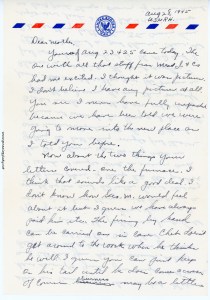 Aug 28, 1945
Dear Mother,
Yours of Aug 22 & 25 came today. The
one with all that stuff from
had me excited. I thought it was pictures.
I don't believe I have any picture at all
You see I never have fully unpacked
because we have been told we were
going to move into the new place as
I told you before.
Now about the two things your
letters covered. One the furnace. I
think that sounds like a good deal. I
don't know how Geo. M. would feel
about it but I guess we have always
paid him atm. The firing by hand
can be carried on in case Chet doesn't
get around to the work when he thinks
he will. I guess you can just keep
on his tail until he does
Of course may be a little